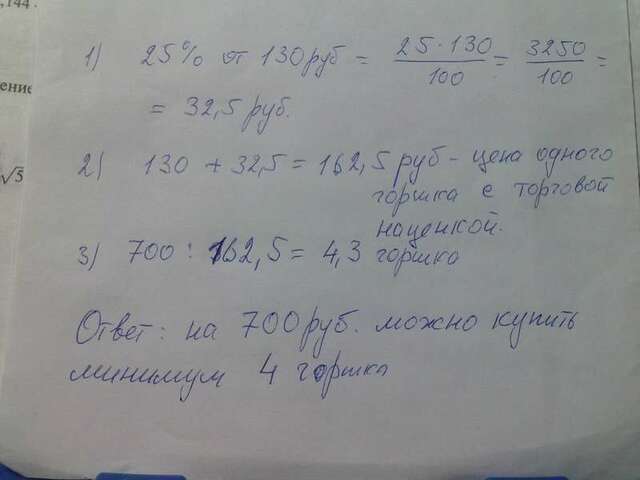 ,144.
ение
√5
1) 25% от 130 руб = 25·130/100 = 3250/100 =
= 32,5 руб.
2) 130 + 32,5 = 162,5 руб - цена одного
горшка с торговой
наценкой.
3) 700 : 162,5 = 4,3 горшка
Ответ: на 700 руб. можно купить
минимум 4 горшка